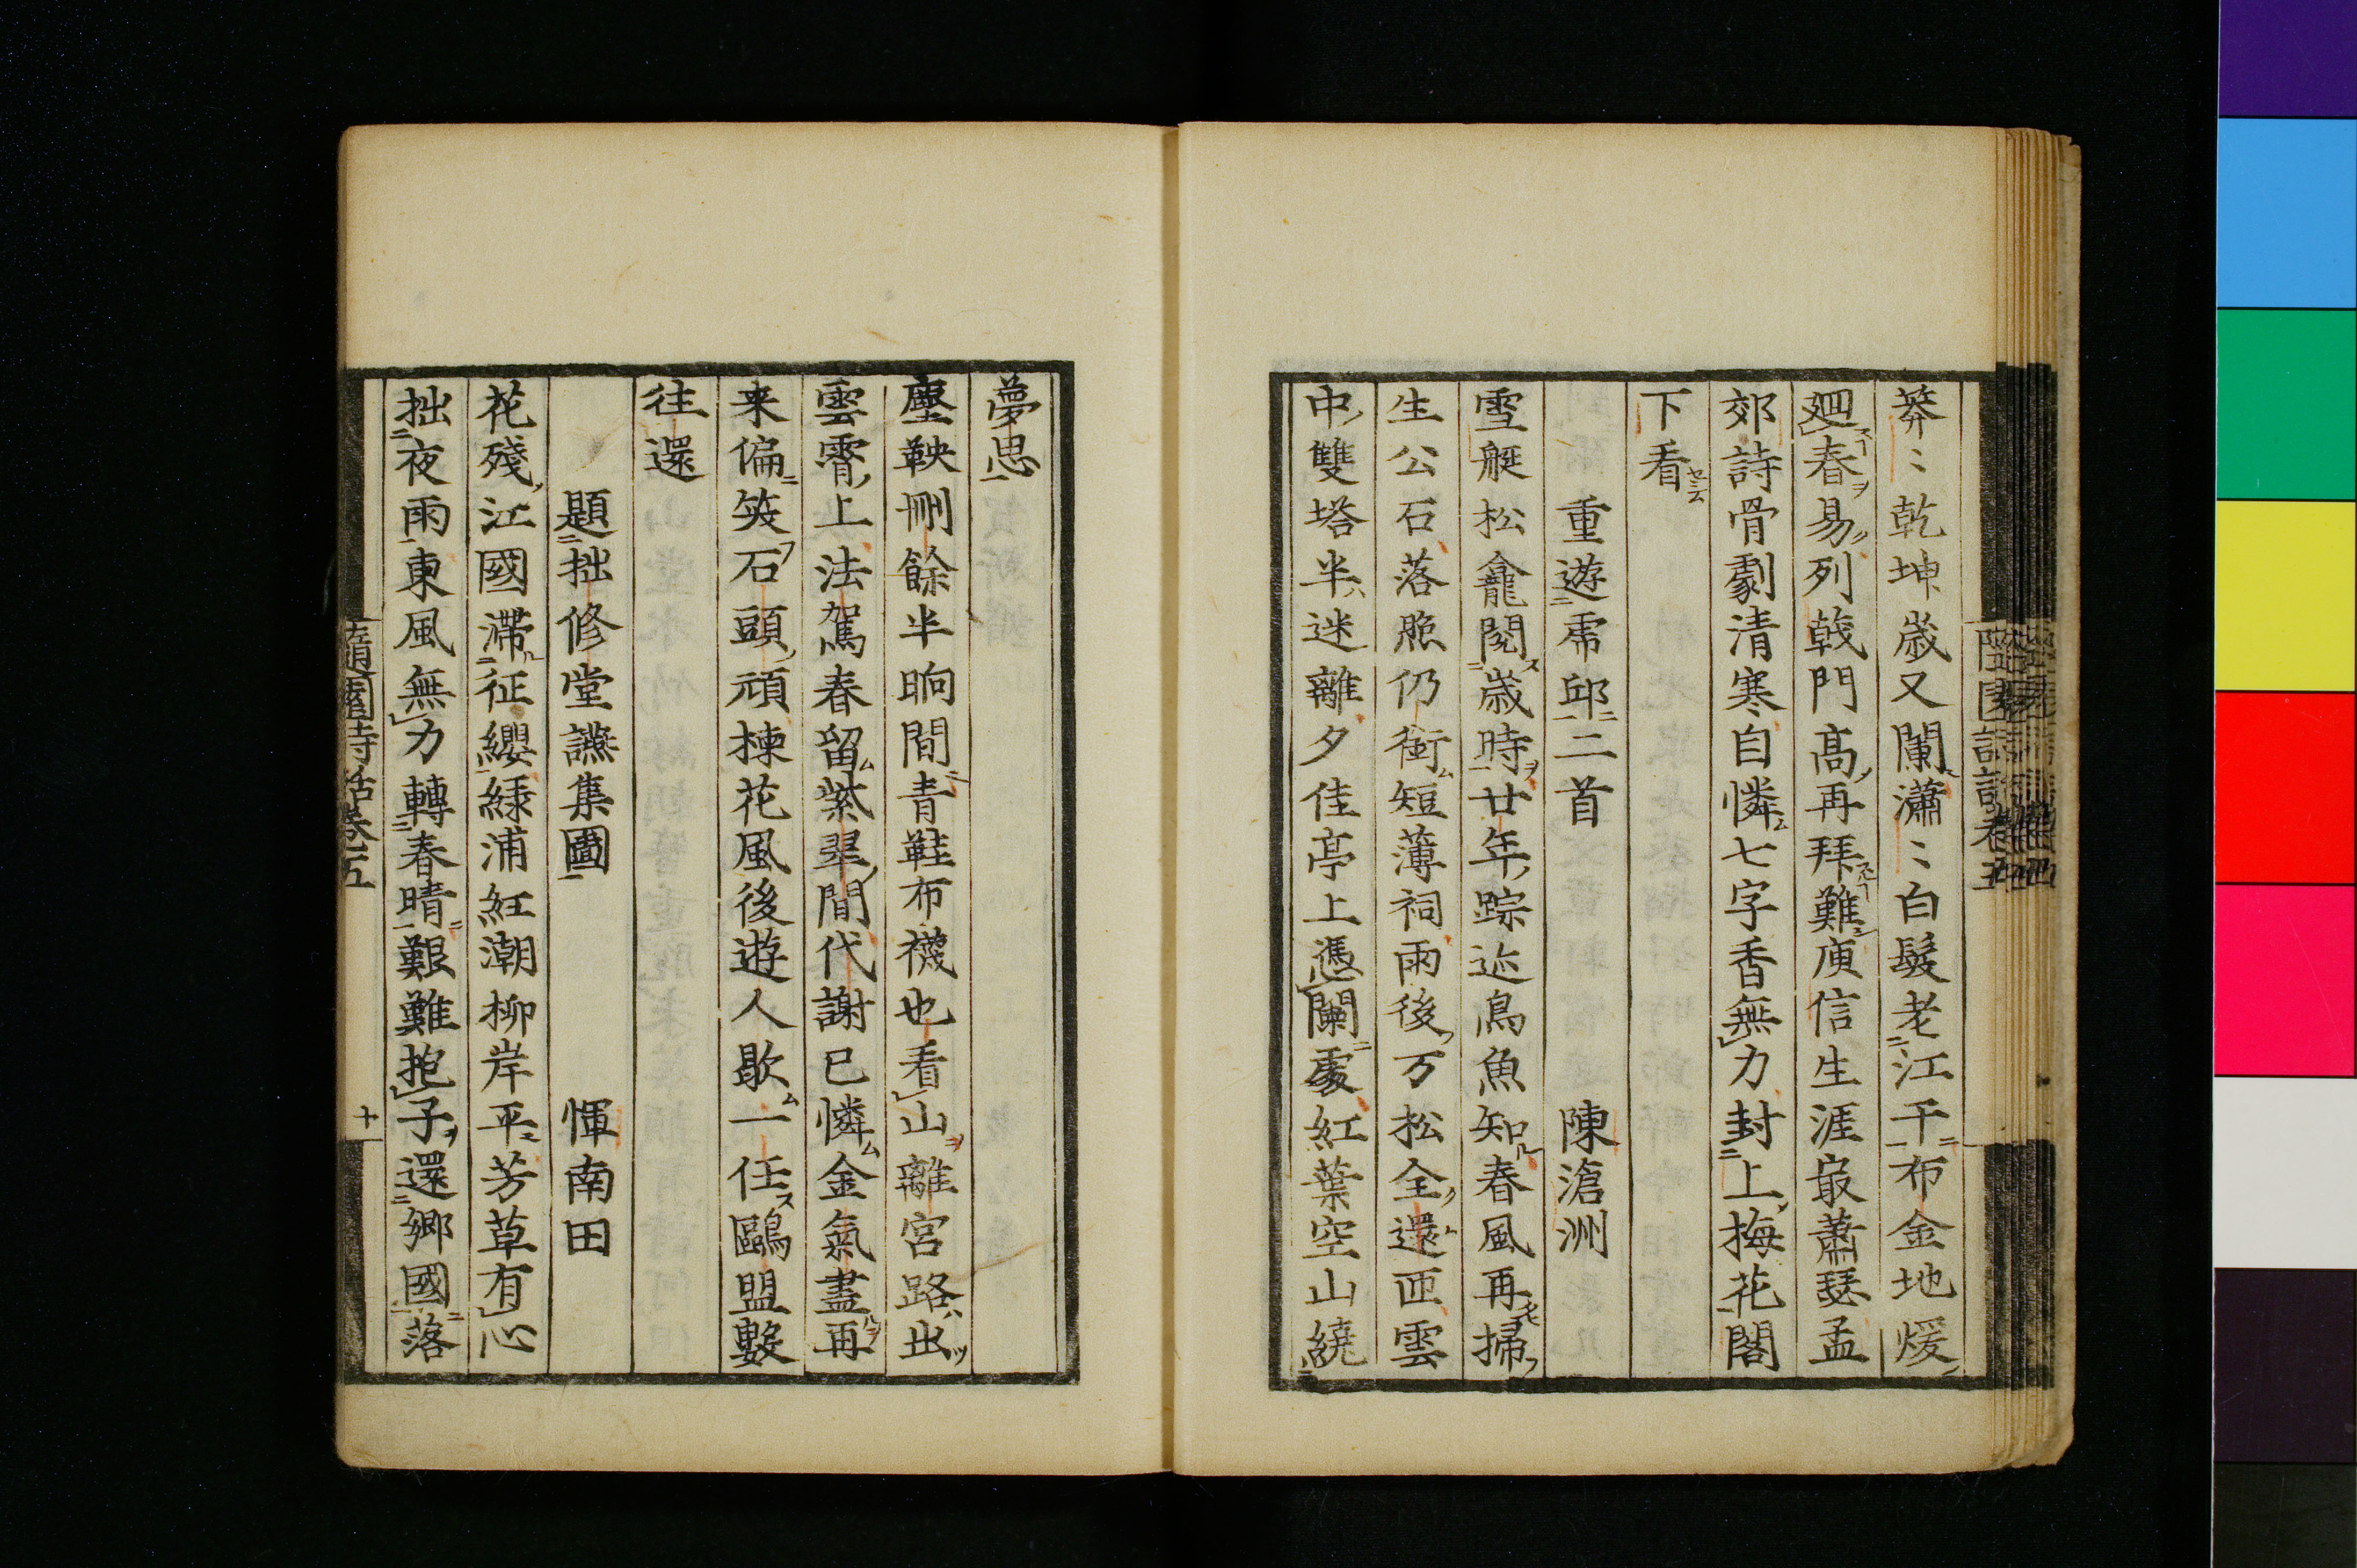 莽〻乾坤歳又闌瀟〻白髮老江干布金地煖
廻春易列戟門高再拜難庾信生涯㝡蕭瑟孟
郊詩骨劇清寒自憐七字香無力封上梅花閣
下看
重遊虎邱二首　陳滄洲
雪艇松龕閱歳時廿年踪迹鳥魚知春風再掃
生公石落照仍銜短薄祠雨後万松全還匝雲
中雙塔半迷離夕佳亭上憑闌處紅葉空山繞
夢思
塵鞅刪餘半晌間青鞋布襪也看山離宮路出
雲霄上法駕春留紫翠間代謝已憐金氣盡再
来偏笑石頭頑揀花風後遊人歇一任鷗盟數
往還
題拙修堂讌集圖　惲南田
花殘江國滯征纓綠浦紅潮柳岸平芳草有心
拙夜雨東風無力轉春晴艱難抱子還鄉國落
隨園詩話卷五
十